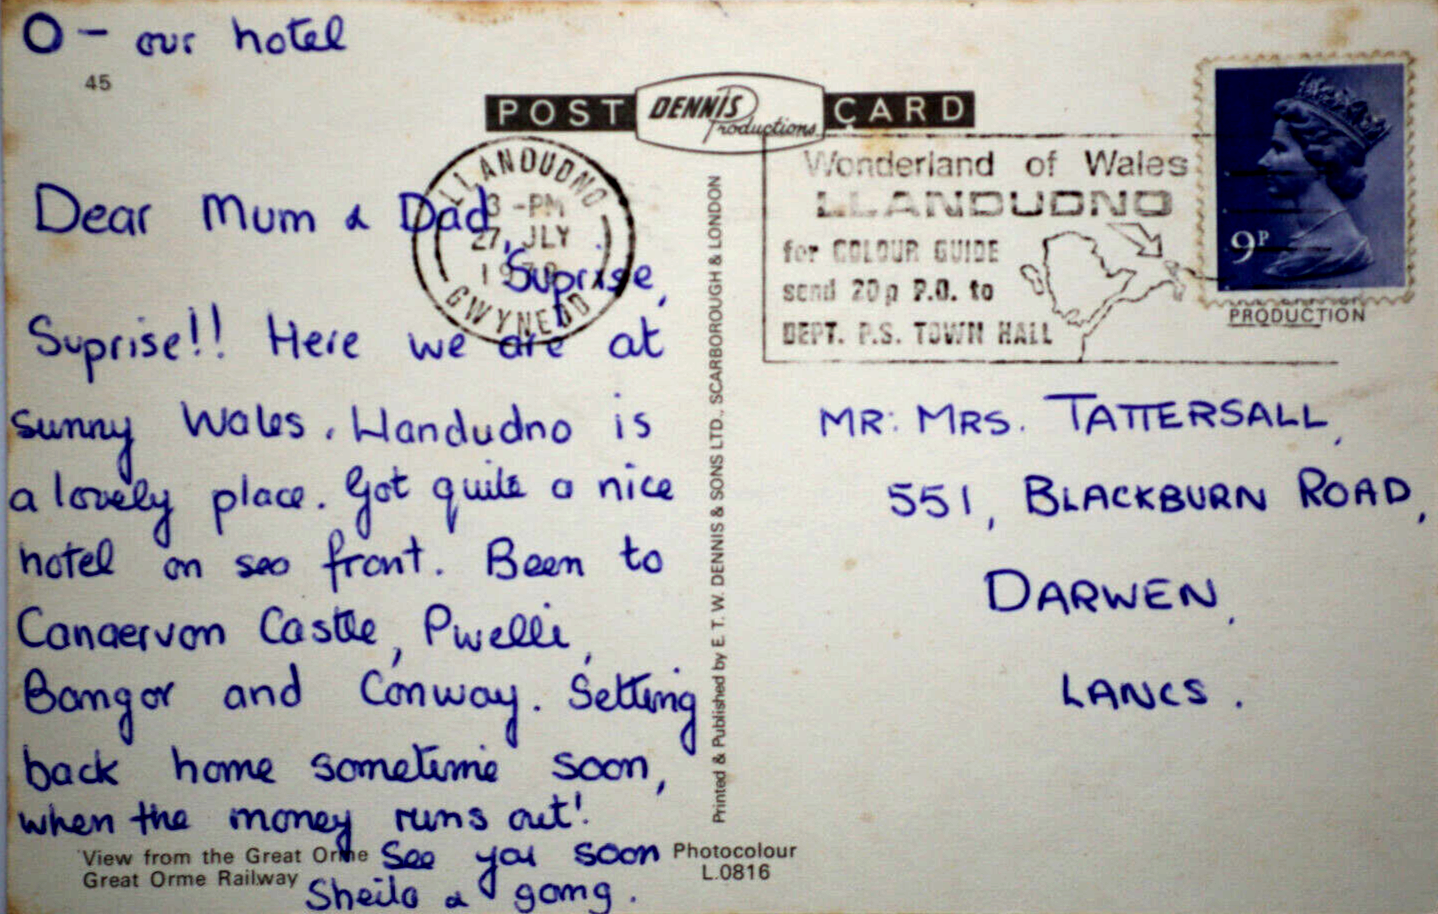 O - our hotel
45
POST DENNIS Productions. CARD
LLANDUDNO
3 - PM
27 JLY
GWYNEDD
Wonderland of Wales
LLANDUDNO
for COLOUR GUIDE
send 20p P.O. to
DEPT. P.S. TOWN HALL
9P
PRODUCTION
Dear Mum & Dad,
Suprise,
Suprise!! Here we are at
sunny Wales. Llandudno is
a lovely place. Got quite a nice
hotel on sea front. Been to
Canaervon Castle, Pwelli,
Bangor and Conway. Setting
back home sometime soon,
when the money runs out!
See you soon
Sheila & gang.
View from the Great Orme
Great Orme Railway
Photocolour
L.0816
Printed & Published by E. T. W. DENNIS & SONS LTD., SCARBOROUGH & LONDON
MR: MRS. TATTERSALL,
551, BLACKBURN ROAD,
DARWEN,
LANCS.